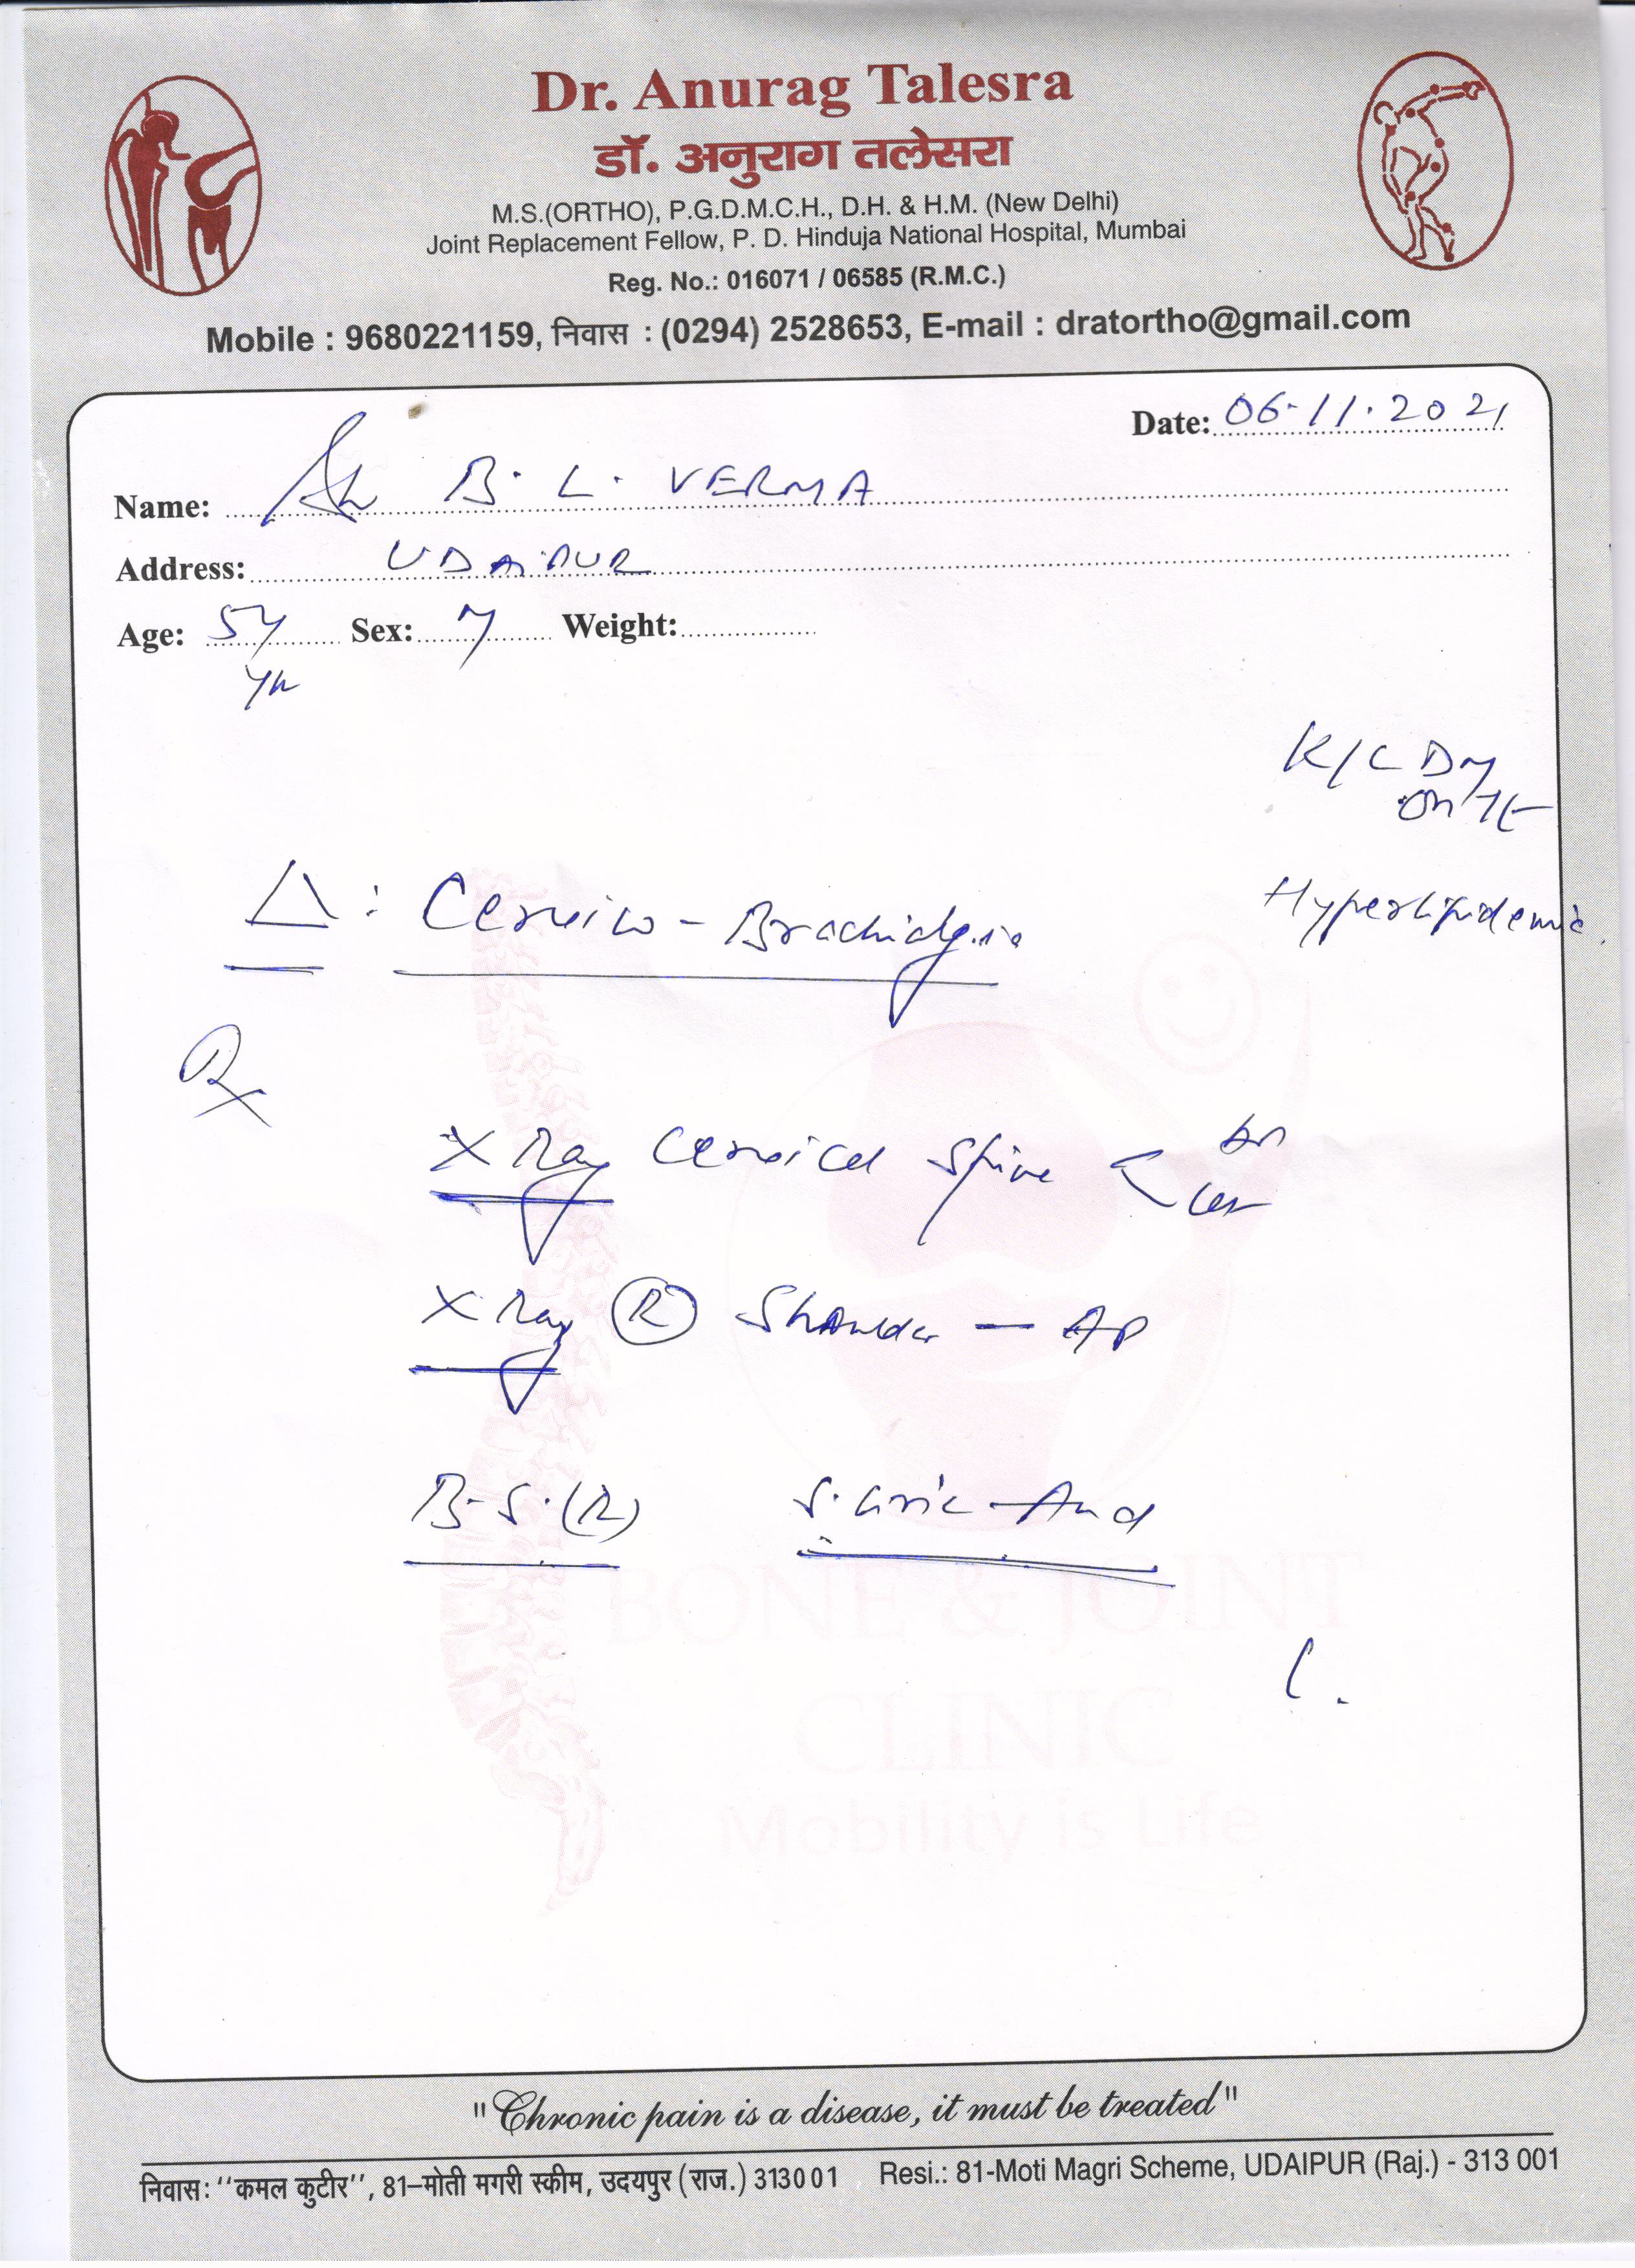 Dr. Anurag Talesra
डॉ. अनुराग तलेसरा
M.S.(ORTHO), P.G.D.M.C.H., D.H. & H.M. (New Delhi)
Joint Replacement Fellow, P. D. Hinduja National Hospital, Mumbai
Reg. No.: 016071 / 06585 (R.M.C.)
Mobile : 9680221159, निवास : (0294) 2528653, E-mail : dratortho@gmail.com
Date: 06.11.2021
Name: Sh B. L. VERMA
Address: UDAIPUR
Age: Sex: M Weight:
K/C DM
Hyperlipidemic
Δ: Cervico - Brachialgia
Rx
X Ray Cervical Spine < AP
Lat
X Ray (R) Shoulder — AP
B.S.(R) S. Uric Acid
BONE & JOINT
CLINIC
Mobility is Life
"Chronic pain is a disease, it must be treated"
निवास: ‘‘कमल कुटीर’’, 81–मोती मगरी स्कीम, उदयपुर (राज.) 313001 Resi.: 81-Moti Magri Scheme, UDAIPUR (Raj.) - 313 001